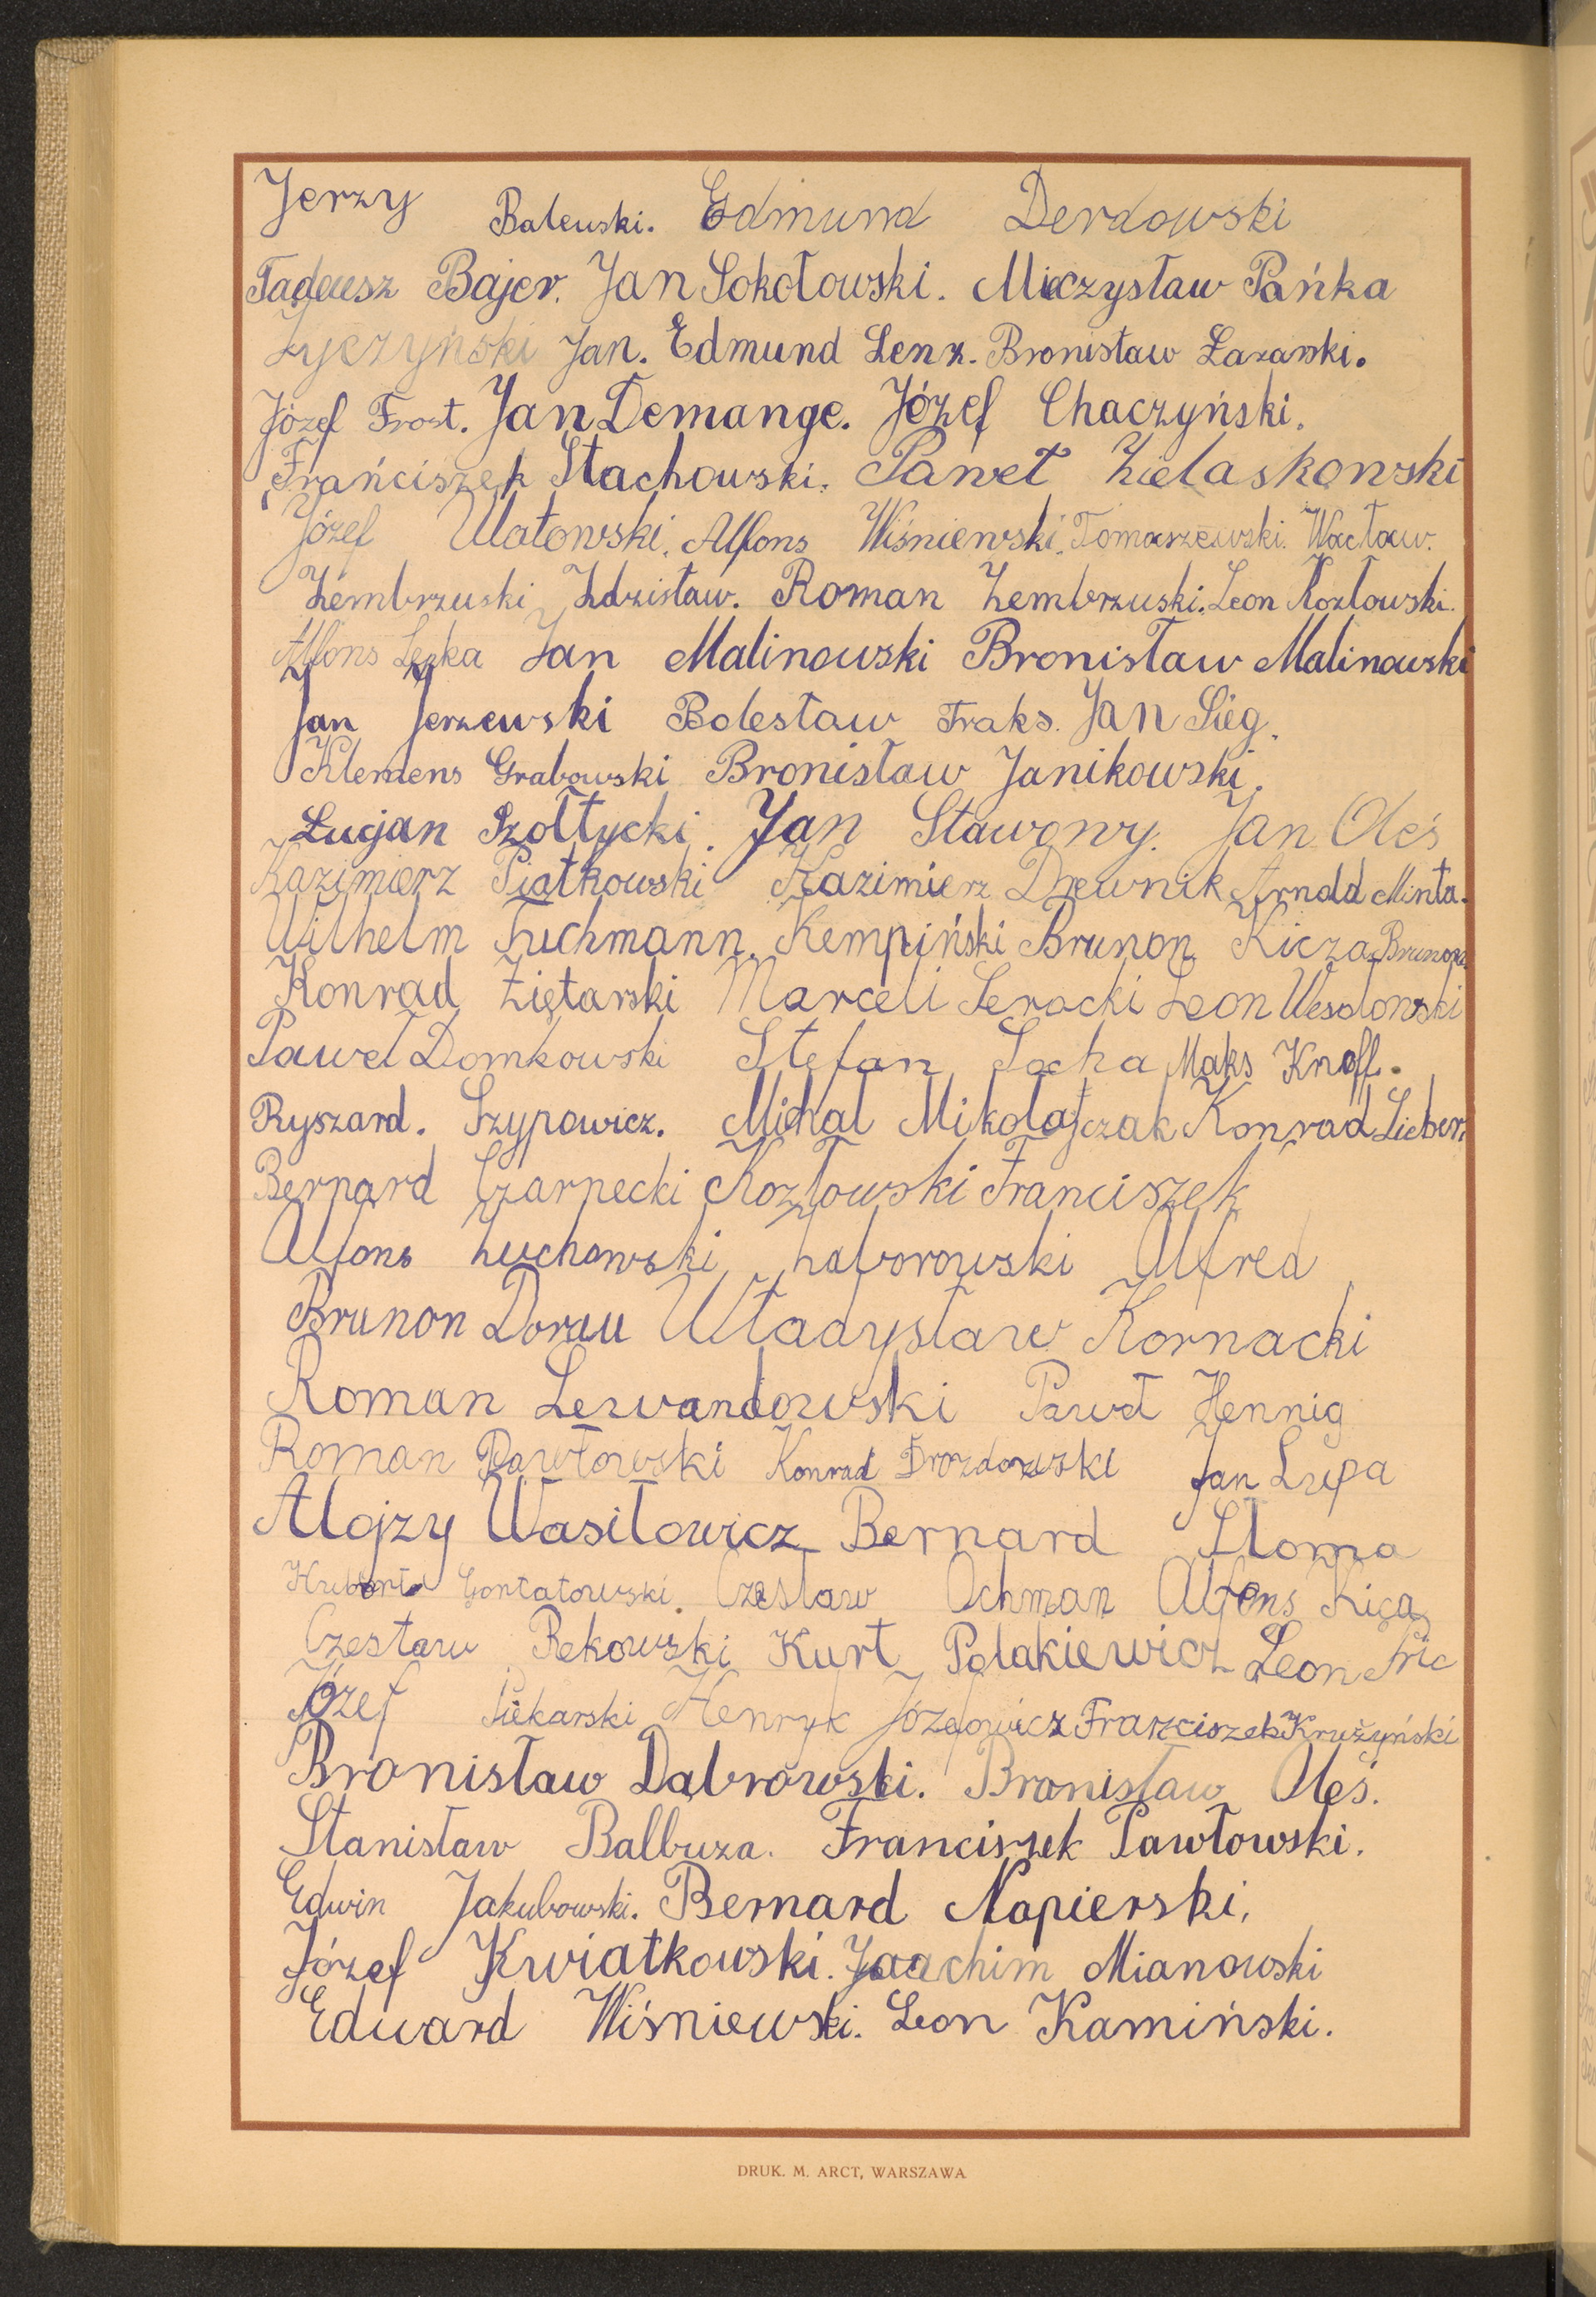 Jerzy Balewski. Edmund Derdowski
Tadeusz Bajer. Jan Sokołowski. Mieczysław Pańka
Życzyński Jan. Edmund Lenz. Bronisław Łazarski.
Józef Frost. Jan Demange. Józef Chaczyński.
Frańciszek Stachowski. Paweł Zielaskowski
Józef Ulatowski. Alfons Wiśniewski. Tomaszewski Wacław.
Zembrzuski Zdzisław. Roman Zembrzuski. Leon Kozłowski.
Alfons Lepka Jan Malinowski Bronisław Malinowski
Jan Jerzewski Bolesław Fraks. Jan Sieg.
Klemens Grabowski Bronisław Janikowski.
Łucjan Szołtycki. Jan Stawony. Jan Oleś
Kazimierz Piątkowski Kazimierz Drewnik Arnold Minta.
Wilhelm Tuchmann. Kempiński Brunon Kicza Brunon
Konrad Ziętarski Marceli Serocki Leon Wesołowski
Paweł Domkowski Stefan Socha Maks Knoff.
Ryszard. Szypowicz. Michal Mikołajczak Konrad Liebert
Bernard Czarnecki Kozłowski Franciszek
Alfons Żuchowski Zaborowski Alfred
Brunon Dorau Władysław Kornacki
Roman Lewandowski Paweł Hennig
Roman Pawłowski Konrad Drozdowski Jan Lupa
Alojzy Wasilowicz Bernard Słoma
Hubert Gontatowski. Czesław Ochman Alfons Kica
Czesław Rekowski Kurt Polakiewicz Leon Pric
Józef Piekarski Henryk Józefowicz Franciszek Krużyński
Bronisław Dąbrowski. Bronisław Oleś.
Stanisław Balbuza. Franciszek Pawłowski.
Edwin Jakubowski. Bernard Napierski.
Józef Kwiatkowski. Joachim Mianowski
Edward Wiśniewski. Leon Kamiński.
DRUK. M. ARCT, WARSZAWA